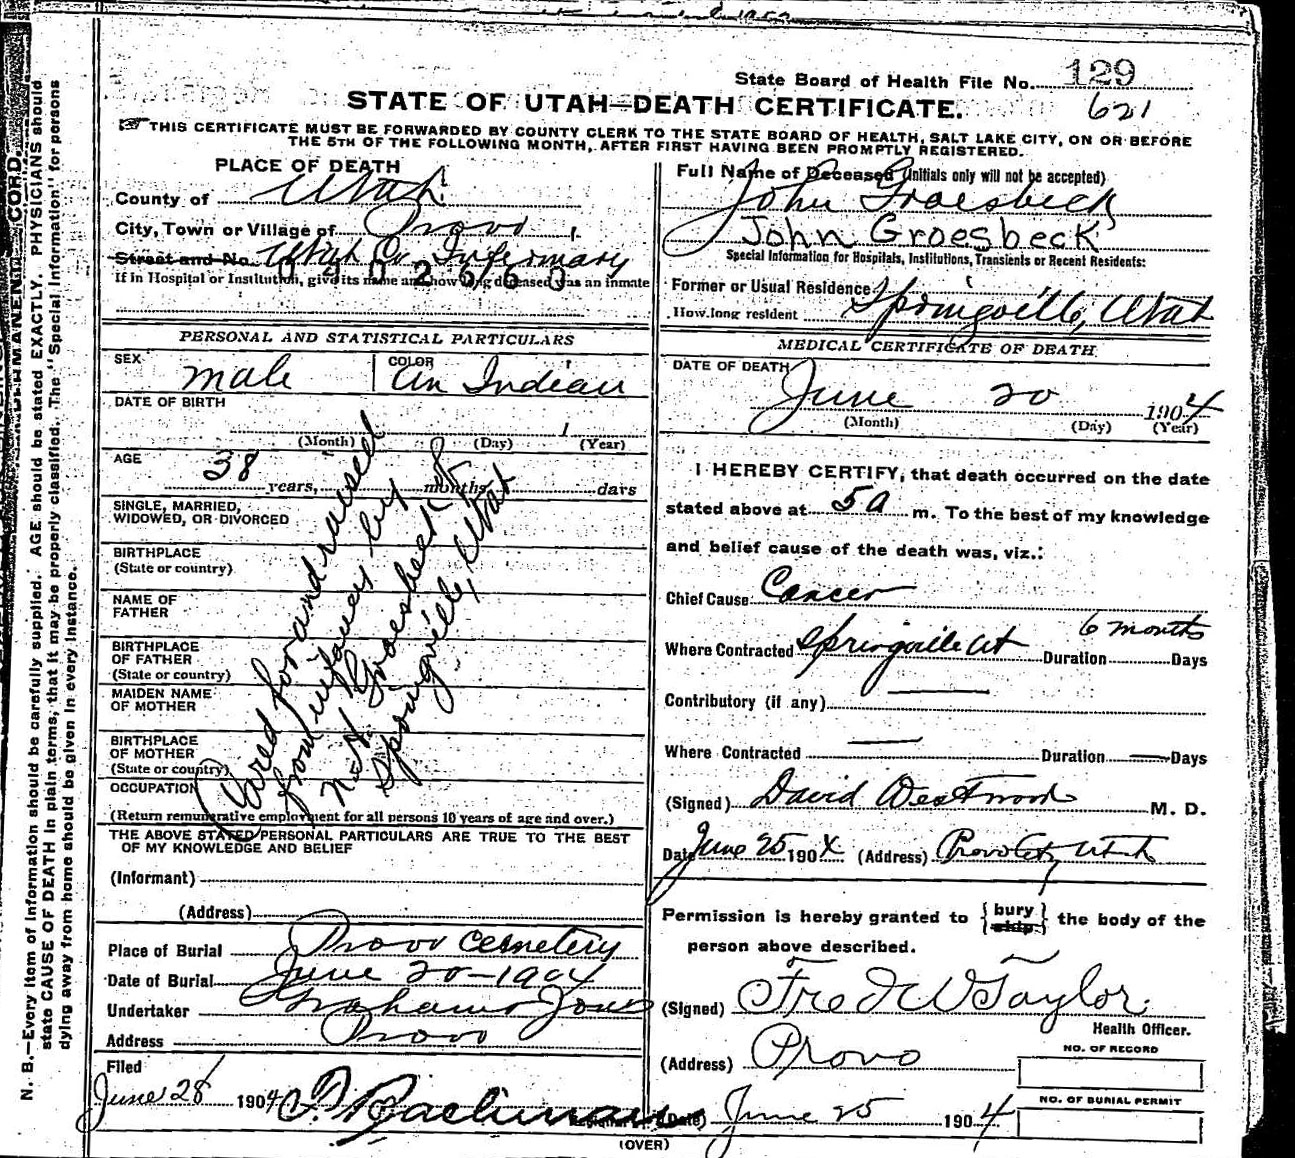 State Board of Health File No. 129
621
STATE OF UTAH—DEATH CERTIFICATE.
THIS CERTIFICATE MUST BE FORWARDED BY COUNTY CLERK TO THE STATE BOARD OF HEALTH, SALT LAKE CITY, ON OR BEFORE
THE 5TH OF THE FOLLOWING MONTH, AFTER FIRST HAVING BEEN PROMPTLY REGISTERED.
PLACE OF DEATH
County of Utah
City, Town or Village of Provo
Street and No. Utah Co Infirmary
0402660
If in Hospital or Institution, give its name and how long deceased was an inmate
PERSONAL AND STATISTICAL PARTICULARS
SEX male COLOR An Indian
DATE OF BIRTH
(Month) (Day) 1 (Year)
AGE 38 years, months, days
SINGLE, MARRIED,
WIDOWED, OR DIVORCED
BIRTHPLACE
(State or country)
NAME OF
FATHER
BIRTHPLACE
OF FATHER
(State or country)
MAIDEN NAME
OF MOTHER
BIRTHPLACE
OF MOTHER
(State or country)
OCCUPATION
(Return remunerative employment for all persons 10 years of age and over.)
Cared for and raised
from infancy by
N. H. Groesbeck of
Springville, Utah
THE ABOVE STATED PERSONAL PARTICULARS ARE TRUE TO THE BEST
OF MY KNOWLEDGE AND BELIEF
(Informant)
(Address)
Place of Burial Provo Cemetery
Date of Burial June 20-1904
Undertaker Graham
Address Provo
Filed
June 28 1904
Full Name of Deceased (Initials only will not be accepted)
John Groesbeck
John Groesbeck
Special Information for Hospitals, Institutions, Transients or Recent Residents:
Former or Usual Residence
How long resident Springville, Utah
MEDICAL CERTIFICATE OF DEATH
DATE OF DEATH
June 20 1904
(Month) (Day) (Year)
I HEREBY CERTIFY, that death occurred on the date
stated above at 5 a m. To the best of my knowledge
and belief cause of the death was, viz.:
Chief Cause Cancer
Where Contracted Springville Ut Duration 6 months Days
Contributory (if any)
Where Contracted Duration Days
(Signed) David Westwood M. D.
Date June 25 1904 (Address) Provo City Utah
Permission is hereby granted to {bury ship} the body of the
person above described.
(Signed) Fred W Taylor
Health Officer.
(Address) Provo
NO. OF RECORD
NO. OF BURIAL PERMIT
(Date) June 25 1904
(OVER)
N. B.—Every item of information should be carefully supplied. AGE should be stated EXACTLY. PHYSICIANS should
state CAUSE OF DEATH in plain terms, that it may be properly classified. The "Special Information" for persons
dying away from home should be given in every instance.